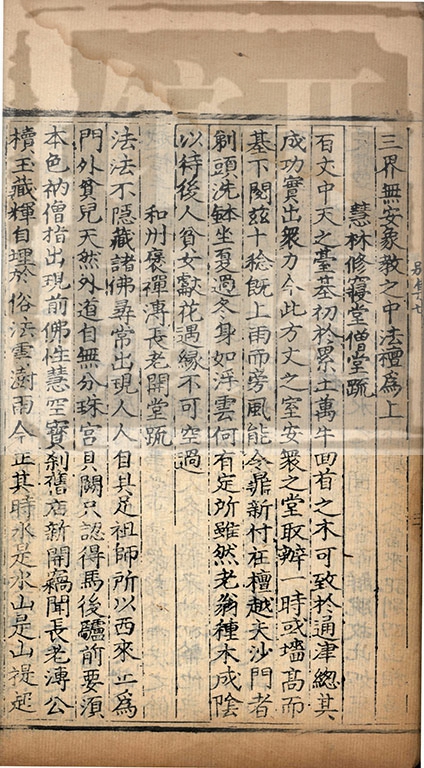 三界無安象教之中法檀為上
慧林修寢堂僧堂䟽
百丈中天之臺基初於累土萬牛回首之木可致於通津總其
成功實出衆力今此方丈之室安衆之堂取辦一時或墻髙而
基下閱茲十稔既上雨而旁風能令鼎新付在檀越夫沙門者
剃頭洗鉢坐夏過冬身如浮雲何有定所雖然老翁種木成隂
以待後人貧女獻花遇緣不可空過
和州襃禪溥長老開堂䟽
法法不隱藏諸佛尋常出現人人自具足祖師所以西來上為
門外貧兒天然外道自無分珠宮貝闕只認得馬後驢前要湏
本色衲僧指出現前佛性慧空寶刹舊店新開竊聞長老溥公
櫝玉藏輝自埋於俗法雲澍雨今正其時水是水山是山提起